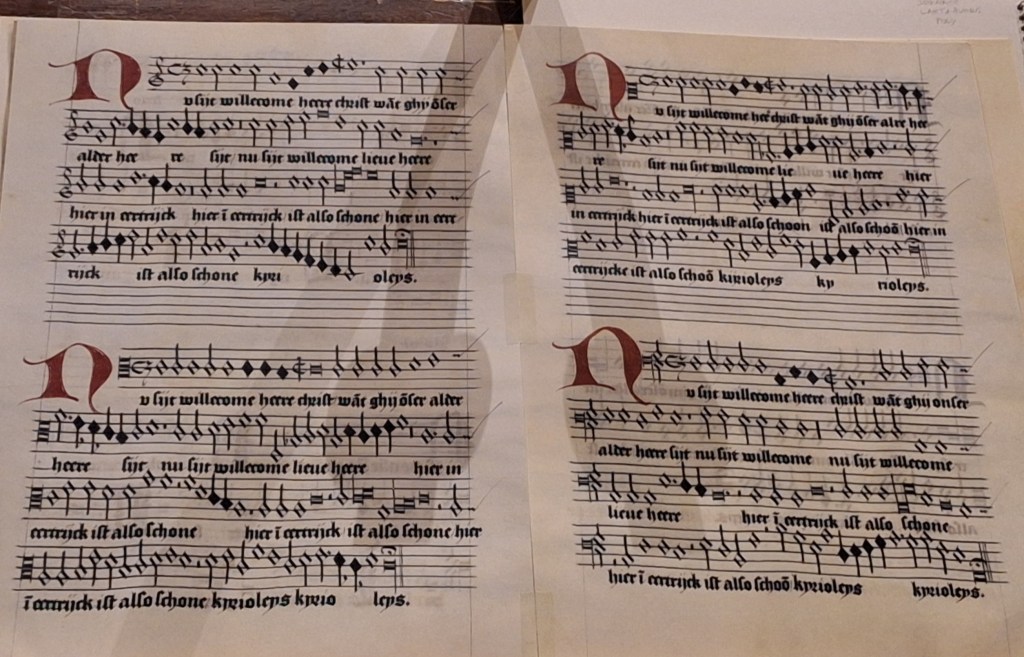 Nu sijt willecome heere christ wāt ghij ōser
alder hee re sijt nu sijt willecome lieue heere
hier in eertrijck hier ī eertrijck ist also schone hier in eert
rijck ist also schone kyri oleys.
Nu sijt willecome hee christ wāt ghij ōser alre hee
re sijt nu sijt willecome lie ue heere hier
in eertrijck hier ī eertrijck ist also schoon ist also schoō hier in
eertrijcke ist also schoō kirioleys ky rioleys.
Nu sijt willecome heere christ wāt ghij ōser alder
heere sijt nu sijt willecome lieue heere hier in
eertrijck ist also schone hier ī eertrijck ist also schone hier
ī eertrijck ist also schone kyrioleys kyrio leys.
Nu sijt willecome heere christ wāt ghij onser
alder heere sijt nu sijt willecome nu sijt willecome
lieue heere hier ī eertrijck ist also schone
hier ī eertrijck ist also schoō kyrioleys kyrioleys.